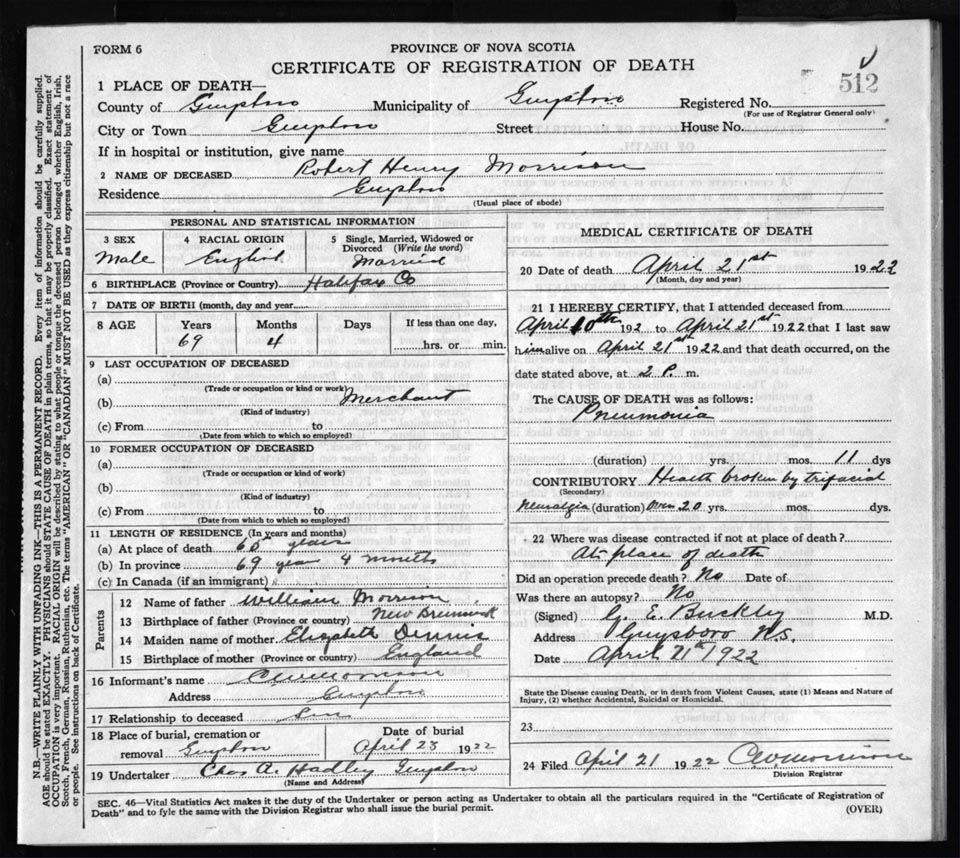 FORM 6
PROVINCE OF NOVA SCOTIA
CERTIFICATE OF REGISTRATION OF DEATH
512
1 PLACE OF DEATH—
County of Guysboro Municipality of Guysboro Registered No.
(For use of Registrar General only)
City or Town Guysboro Street House No.
If in hospital or institution, give name
2 NAME OF DECEASED Robert Henry Morrison
Residence Guysboro
(Usual place of abode)
PERSONAL AND STATISTICAL INFORMATION
3 SEX 4 RACIAL ORIGIN 5 Single, Married, Widowed or Divorced (Write the word)
Male English Married
6 BIRTHPLACE (Province or Country) Halifax Co
7 DATE OF BIRTH (month, day and year
8 AGE Years Months Days If less than one day,
69 4 hrs. or min.
9 LAST OCCUPATION OF DECEASED
(a)
(Trade or occupation or kind or work)
(b) Merchant
(Kind of industry)
(c) From to
(Date from which to which so employed)
10 FORMER OCCUPATION OF DECEASED
(a)
(Trade or occupation or kind of work)
(b)
(Kind of industry)
(c) From to
(Date from which to which so employed)
11 LENGTH OF RESIDENCE (In years and months)
(a) At place of death 65 years
(b) In province 69 years 4 months
(c) In Canada (if an immigrant)
Parents
12 Name of father William Morrison
13 Birthplace of father (Province or country) New Brunswick
14 Maiden name of mother Elizabeth Dennis
15 Birthplace of mother (Province or country) England
16 Informant's name C W Morrison
Address Guysboro
17 Relationship to deceased Son
18 Place of burial, cremation or removal Guysboro Date of burial April 23 1922
19 Undertaker Chas A. Hadley Guysboro
(Name and Address)
MEDICAL CERTIFICATE OF DEATH
20 Date of death April 21st 1922
(Month, day and year)
21 I HEREBY CERTIFY, that I attended deceased from
April 10th 192 to April 21st 1922 that I last saw
him alive on April 21st 1922 and that death occurred, on the
date stated above, at 2 P. m.
The CAUSE OF DEATH was as follows:
Pneumonia
(duration) yrs. mos. 11 dys
CONTRIBUTORY Health broken by trifacial
(Secondary)
Neuralgia (duration) Over 20 yrs. mos. dys.
22 Where was disease contracted if not at place of death?
At place of death
Did an operation precede death? No Date of
Was there an autopsy? No
(Signed) G. E. Buckley M.D.
Address Guysboro N.S.
Date April 21st 1922
State the Disease causing Death, or in death from Violent Causes, state (1) Means and Nature of
Injury, (2) whether Accidental, Suicidal or Homicidal.
23
24 Filed April 21 1922 C W Morrison
Division Registrar
SEC. 46—Vital Statistics Act makes it the duty of the Undertaker or person acting as Undertaker to obtain all the particulars required in the "Certificate of Registration of
Death" and to fyle the same with the Division Registrar who shall issue the burial permit.
(OVER)
N.B.—WRITE PLAINLY WITH UNFADING INK—THIS IS A PERMANENT RECORD. Every item of information should be carefully supplied.
AGE should be stated EXACTLY. PHYSICIANS should STATE CAUSE OF DEATH in plain terms, so that it may be properly classified. Exact statement of
OCCUPATION is very important. RACIAL ORIGIN will be described by stating to what people or tongue the deceased person belonged whether English, Irish,
Scotch, French, German, Russian, Ruthenian, etc. The terms "AMERICAN" OR "CANADIAN" MUST NOT BE USED as they express citizenship but not a race
or people. See instructions on back of Certificate.